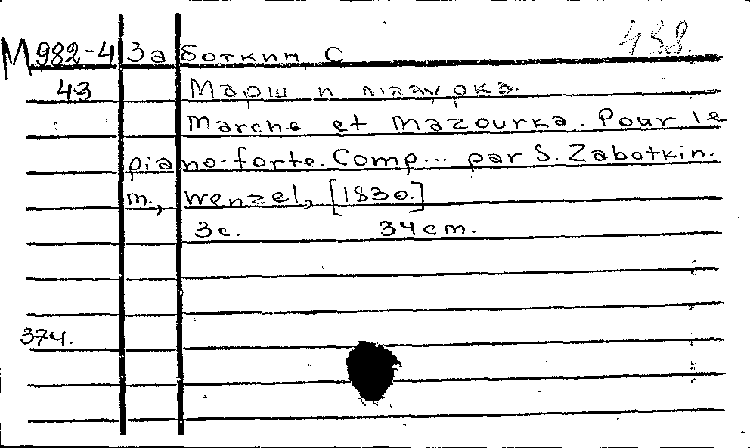 М 982-4 Заботкин С 438.
43 Марш и мазурка.
Marche et mazourka. Pour le
piano-forte. Comp... par S. Zabotkin.
m., Wenzel, [1830.]
3с. 34 cm.
374.